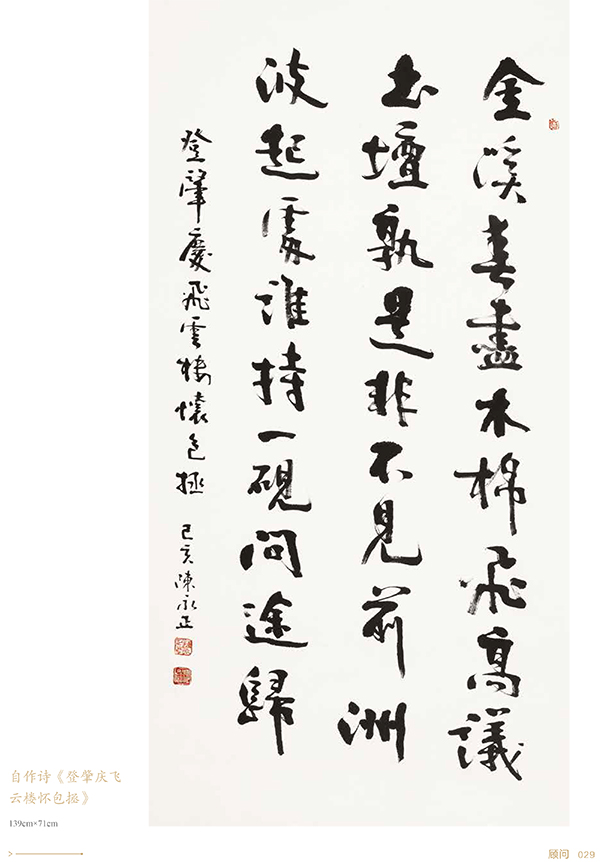 金溪春盡木棉飛高議
書壇孰是非不見前洲
波起處誰持一硯問途歸
登肇慶飛雲樓懷包拯 己亥陳永正
自作诗《登肇庆飞
云楼怀包拯》
139cm×71cm
顾问 029